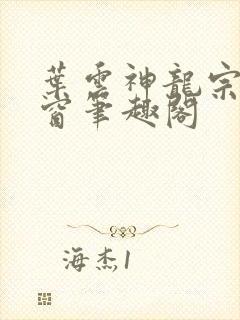 葉雲神龍宗
窗筆趣閣
海杰1